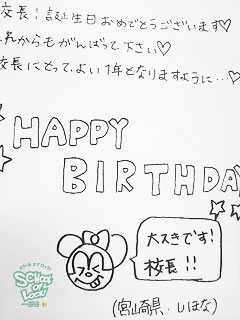 校長!誕生日おめでとうございます♡
れからもがんばって下さい♡
校長にとって、よい1年となりますように…♡
HAPPY
BIRTHDAY
大スきです!
校長!!
SCHOOL OF LOCK!
(宮崎県・しほな)